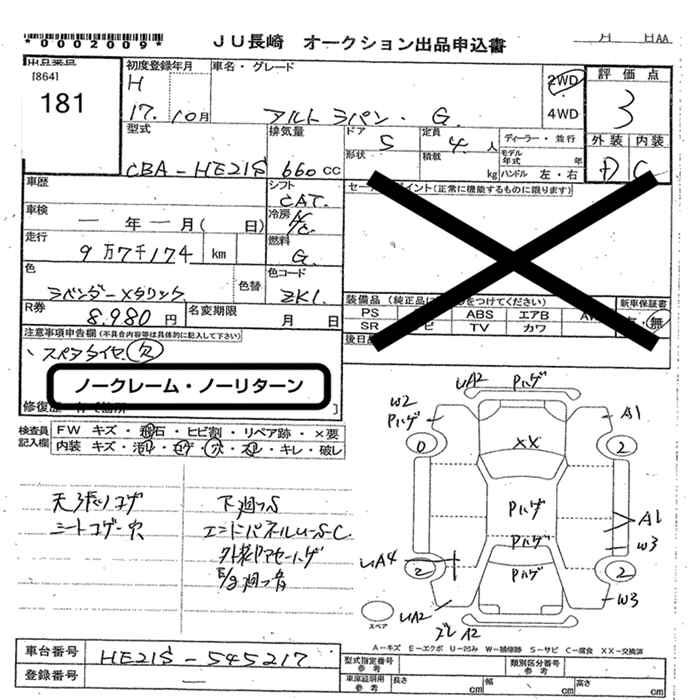 *0002009*
JU長崎 オークション出品申込書
H HAA
出品番号
[864]
181
初度登録年月
H
17. 10月
車名・グレード
アルト ラパン・ G.
2WD
4WD
評価点
3
型式
CBA-HE21S
排気量
660 CC
ドア 5
形状
定員 4. 人
積載 kg
ディーラー・並行
モデル年式 年
ハンドル 左・右
外装 内装
D C
車歴
シフト
CAT.
セールスポイント(正常に機能するものに限ります)
車検
— 年 — 月( 日)
冷房
A/C
走行
9万7千174 km
燃料
G.
色
ラベンダーメタリック
色替
色コード
ZKL
装備品(純正品に○をつけてください)
PS ABS エアB
SR TV カワ
新車保証書
無
R券
8.980 円
名変期限
月 日
後日品
注意事項申告欄(不具合内容等は具体的に記入して下さい)
、スペアタイヤ欠
ノークレーム・ノーリターン
修復歴
検査員記入欄
FW キズ・飛石・ヒビ割・リペア跡・×要
内装 キズ・汚れ・コゲ・穴・スレ・キレ・破レ
天張りコゲ
シートコゲ・穴
下廻りS
エンドパネルU-S-C.
E/g廻り音
W2
Pハゲ
UA2
Pハゲ
A1
0
2
XX
Pハゲ
A1
W3
Pハゲ
Pハゲ
UA4
2
2
UA2
W3
スペア
ズレA2
A-キズ E-エクボ U-凹ミ W-補修跡 S-サビ C-腐食 XX-交換済
車台番号
HE21S-545217
登録番号
—
型式指定番号 参考
類別区分番号 参考
車庫証明用 参考
長さ cm
幅 cm
高さ cm